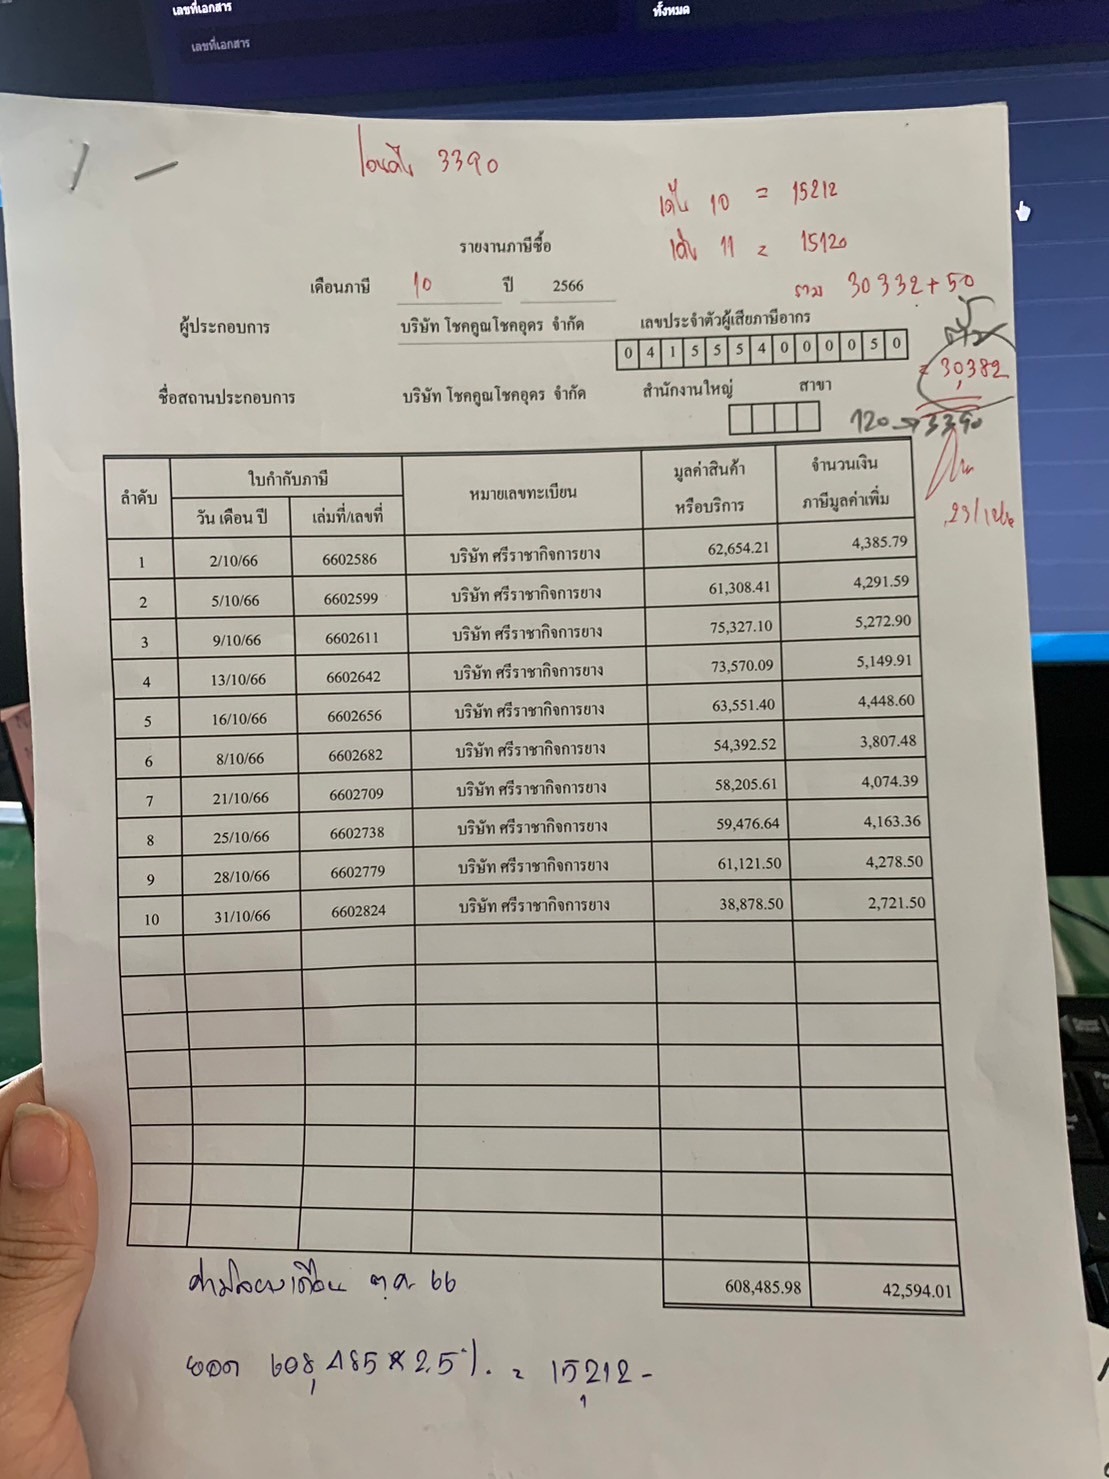 เลขที่เอกสาร
ทั้งหมด
เลขที่เอกสาร
3390
10 = 15212
11 = 15120
รวม 30332+50
= 30,382
120 → 3390
รายงานภาษีซื้อ
เดือนภาษี 10 ปี 2566
ผู้ประกอบการ บริษัท โชคคูณโชคอุดร จำกัด เลขประจำตัวผู้เสียภาษีอากร
0 4 1 5 5 5 4 0 0 0 0 5 0
ชื่อสถานประกอบการ บริษัท โชคคูณโชคอุดร จำกัด สำนักงานใหญ่ สาขา
ลำดับ ใบกำกับภาษี หมายเลขทะเบียน มูลค่าสินค้า จำนวนเงิน
วัน เดือน ปี เล่มที่/เลขที่ หรือบริการ ภาษีมูลค่าเพิ่ม
1 2/10/66 6602586 บริษัท ศรีราชากิจการยาง 62,654.21 4,385.79
2 5/10/66 6602599 บริษัท ศรีราชากิจการยาง 61,308.41 4,291.59
3 9/10/66 6602611 บริษัท ศรีราชากิจการยาง 75,327.10 5,272.90
4 13/10/66 6602642 บริษัท ศรีราชากิจการยาง 73,570.09 5,149.91
5 16/10/66 6602656 บริษัท ศรีราชากิจการยาง 63,551.40 4,448.60
6 8/10/66 6602682 บริษัท ศรีราชากิจการยาง 54,392.52 3,807.48
7 21/10/66 6602709 บริษัท ศรีราชากิจการยาง 58,205.61 4,074.39
8 25/10/66 6602738 บริษัท ศรีราชากิจการยาง 59,476.64 4,163.36
9 28/10/66 6602779 บริษัท ศรีราชากิจการยาง 61,121.50 4,278.50
10 31/10/66 6602824 บริษัท ศรีราชากิจการยาง 38,878.50 2,721.50
608,485.98 42,594.01
เดือน ต.ค. 66
ยอด 608,485 × 2.5 % = 15,212-